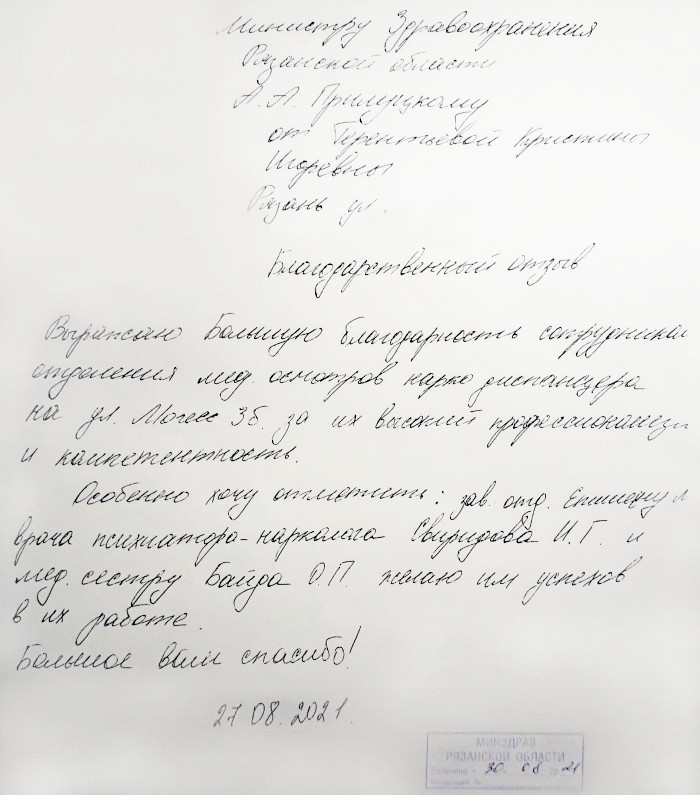 Министру Здравоохранения
Рязанской области
А. А. Прилуцкому
от Терентьевой Кристины
Игоревны
Рязань ул.
Благодарственный отзыв
Выражаю Большую благодарность сотрудникам
отделения мед. осмотров нарко диспансера
на ул. 3б. за их высокий профессионализм
и компетентность.
Особенно хочу отметить: зав. отд.
врача психиатра-нарколога Свиридова И.Г. и
мед. сестру Байда О.П. желаю им успехов
в их работе.
Большое вам спасибо!
27.08.2021.
МИНЗДРАВ
РЯЗАНСКОЙ ОБЛАСТИ
Получено « 30. 08 20 21